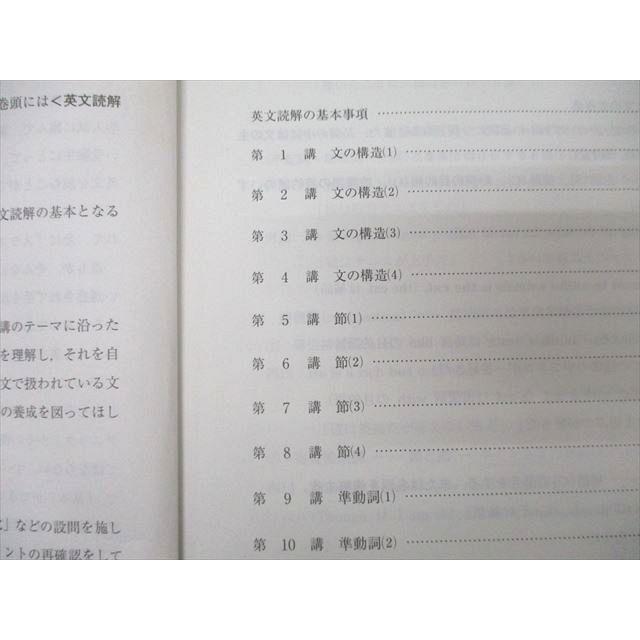 巻頭には<英文読解
文読解の基本となる
講のテーマに沿った
を理解し，それを自
文で扱われている文
の養成を図ってほし
」などの設問を施し
イントの再確認をして
英文読解の基本事項
第 1 講 文の構造(1)
第 2 講 文の構造(2)
第 3 講 文の構造(3)
第 4 講 文の構造(4)
第 5 講 節(1)
第 6 講 節(2)
第 7 講 節(3)
第 8 講 節(4)
第 9 講 準動詞(1)
第 10 講 準動詞(2)